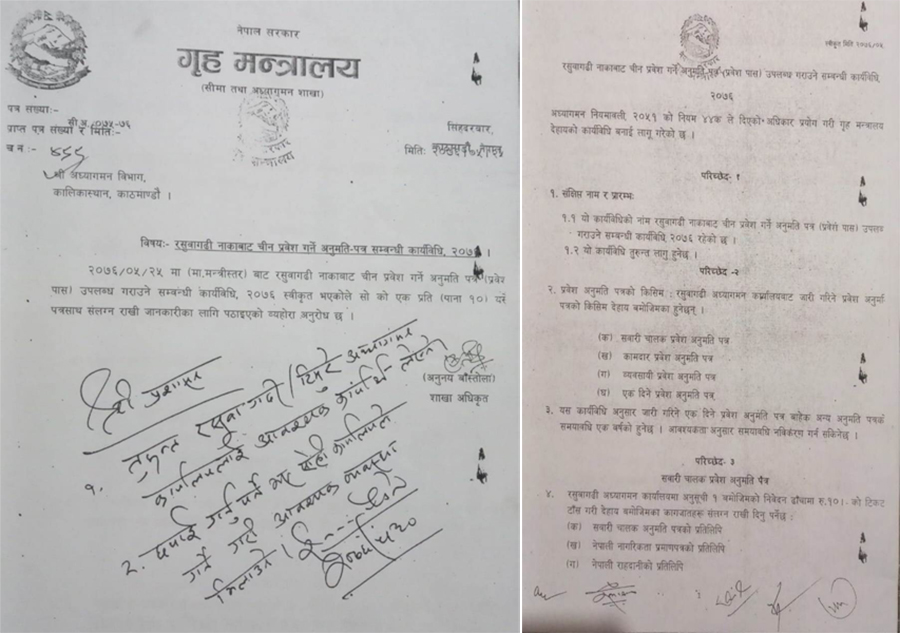 नेपाल सरकार
गृह मन्त्रालय
(सीमा तथा अध्यागमन शाखा)
पत्र संख्याः-
प्राप्त पत्र संख्या र मितिः-
च नः-
सिंहदरबार,
मितिः
श्री अध्यागमन विभाग,
कालिकास्थान, काठमाण्डौ ।
विषयः- रसुवागढी नाकाबाट चीन प्रवेश गर्ने अनुमति-पत्र सम्बन्धी कार्यविधि, २०७६ ।
२०७६/०५/२५ मा (मा.मन्त्रीस्तर) बाट रसुवागढी नाकाबाट चीन प्रवेश गर्ने अनुमति पत्र (प्रवेश
पास) उपलब्ध गराउने सम्बन्धी कार्यविधि, २०७६ स्वीकृत भएकोले सो को एक प्रति (पाना १०) यसै
पत्रसाथ संलग्न राखी जानकारीका लागि पठाइएको व्यहोरा अनुरोध छ ।
(अनुनय बाँस्तोला)
शाखा अधिकृत
१. तुरुन्त रसुवा गढी/
कार्यालयलाई आवश्यक
२.
स्वीकृत मिति २०७६/५/२५
रसुवागढी नाकाबाट चीन प्रवेश गर्ने अनुमति-पत्र (प्रवेश पास) उपलब्ध गराउने सम्बन्धी कार्यविधि,
२०७६
अध्यागमन नियमावली, २०५१ को नियम ४४क ले दिएको अधिकार प्रयोग गरी गृह मन्त्रालय
देहायको कार्यविधि बनाई लागू गरेको छ ।
परिच्छेद- १
१. संक्षिप्त नाम र प्रारम्भः
१.१ यो कार्यविधिको नाम रसुवागढी नाकाबाट चीन प्रवेश गर्ने अनुमति पत्र (प्रवेश पास) उपलब्ध
गराउने सम्बन्धी कार्यविधि, २०७६ रहेको छ ।
१.२ यो कार्यविधि तुरुन्त लागु हुनेछ ।
परिच्छेद -२
२. प्रवेश अनुमति पत्रको किसिम : रसुवागढी अध्यागमन कार्यालयबाट जारी गरिने प्रवेश अनुमति
पत्रको किसिम देहाय बमोजिमका हुनेछन् ।
(क) सवारी चालक प्रवेश अनुमति पत्र
(ख) कामदार प्रवेश अनुमति पत्र
(ग) व्यवसायी प्रवेश अनुमति पत्र
(घ) एक दिने प्रवेश अनुमति पत्र
३. यस कार्यविधि अनुसार जारी गरिने एक दिने प्रवेश अनुमति पत्र बाहेक अन्य अनुमति पत्रको
समयावधि एक वर्षको हुनेछ । आवश्यकता अनुसार समयावधि नविकरण गर्न सकिनेछ ।
परिच्छेद- ३
सवारी चालक प्रवेश अनुमति पत्र
४. रसुवागढी अध्यागमन कार्यालयमा अनुसूची १ बमोजिमको निवेदन ढाँचामा रु.१०।- को टिकट
टाँस गरी देहाय बमोजिमका कागजातहरू संलग्न राखी दिनु पर्नेछ :
(क) सवारी चालक अनुमति पत्रको प्रतिलिपि
(ख) नेपाली नागरिकता प्रमाणपत्रको प्रतिलिपि
(ग) नेपाली राहदानीको प्रतिलिपि